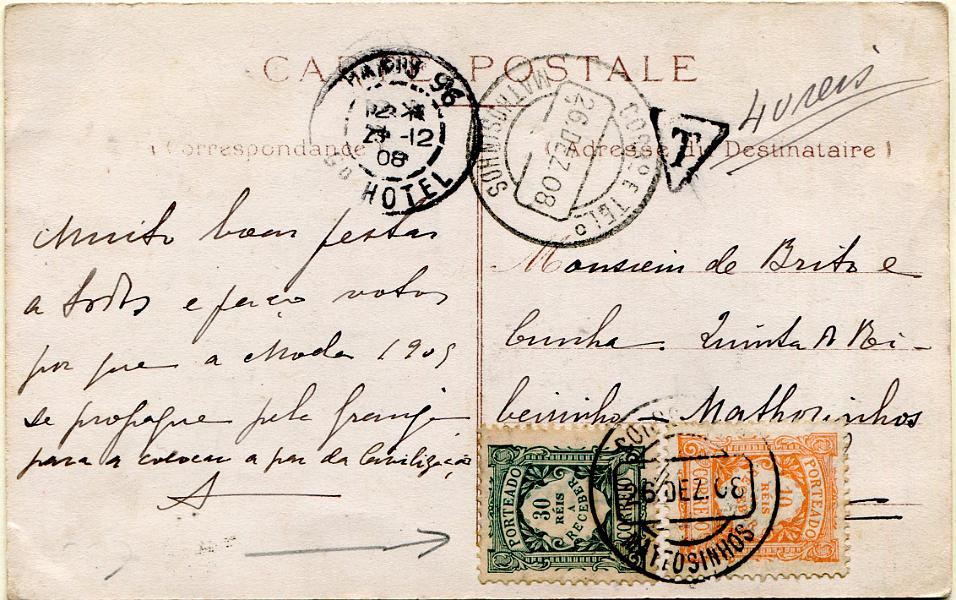 CARTE POSTALE
PARIS 96
22 * 
23 -12
08
HOTEL
CORRO E TELO
26 DEZ. 08
MATTOSINHOS
T
40 reis
( Correspondance
(Adresse du Destinataire )
Muito boas festas
a todos e faço votos
por que a Moda 1909
se propague pela Granja
para a colocar a par da Civilização
A
Monsieur de Brito e
Cunha. Quinta do Ri-
beirinho Mathosinhos
PORTEADO
30
RÉIS
A
RECEBER
CORREIO
PORTEADO
10
RÉIS
CORREIO
26 DEZ. 08
MATTOSINHOS